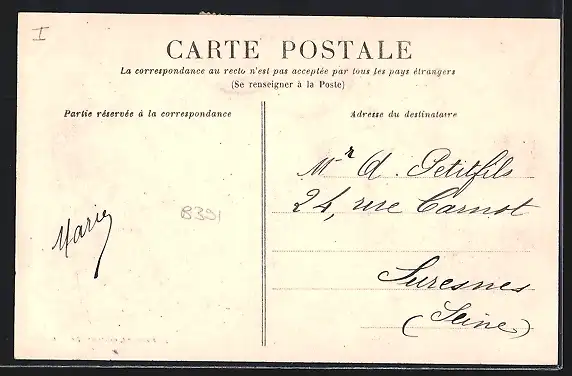 I
CARTE POSTALE
La correspondance au recto n'est pas acceptée par tous les pays étrangers
(Se renseigner à la Poste)
Partie réservée à la correspondance
Marie
B391
Adresse du destinataire
Mr A. Petitfils
24, rue Carnot
Suresnes
(Seine)